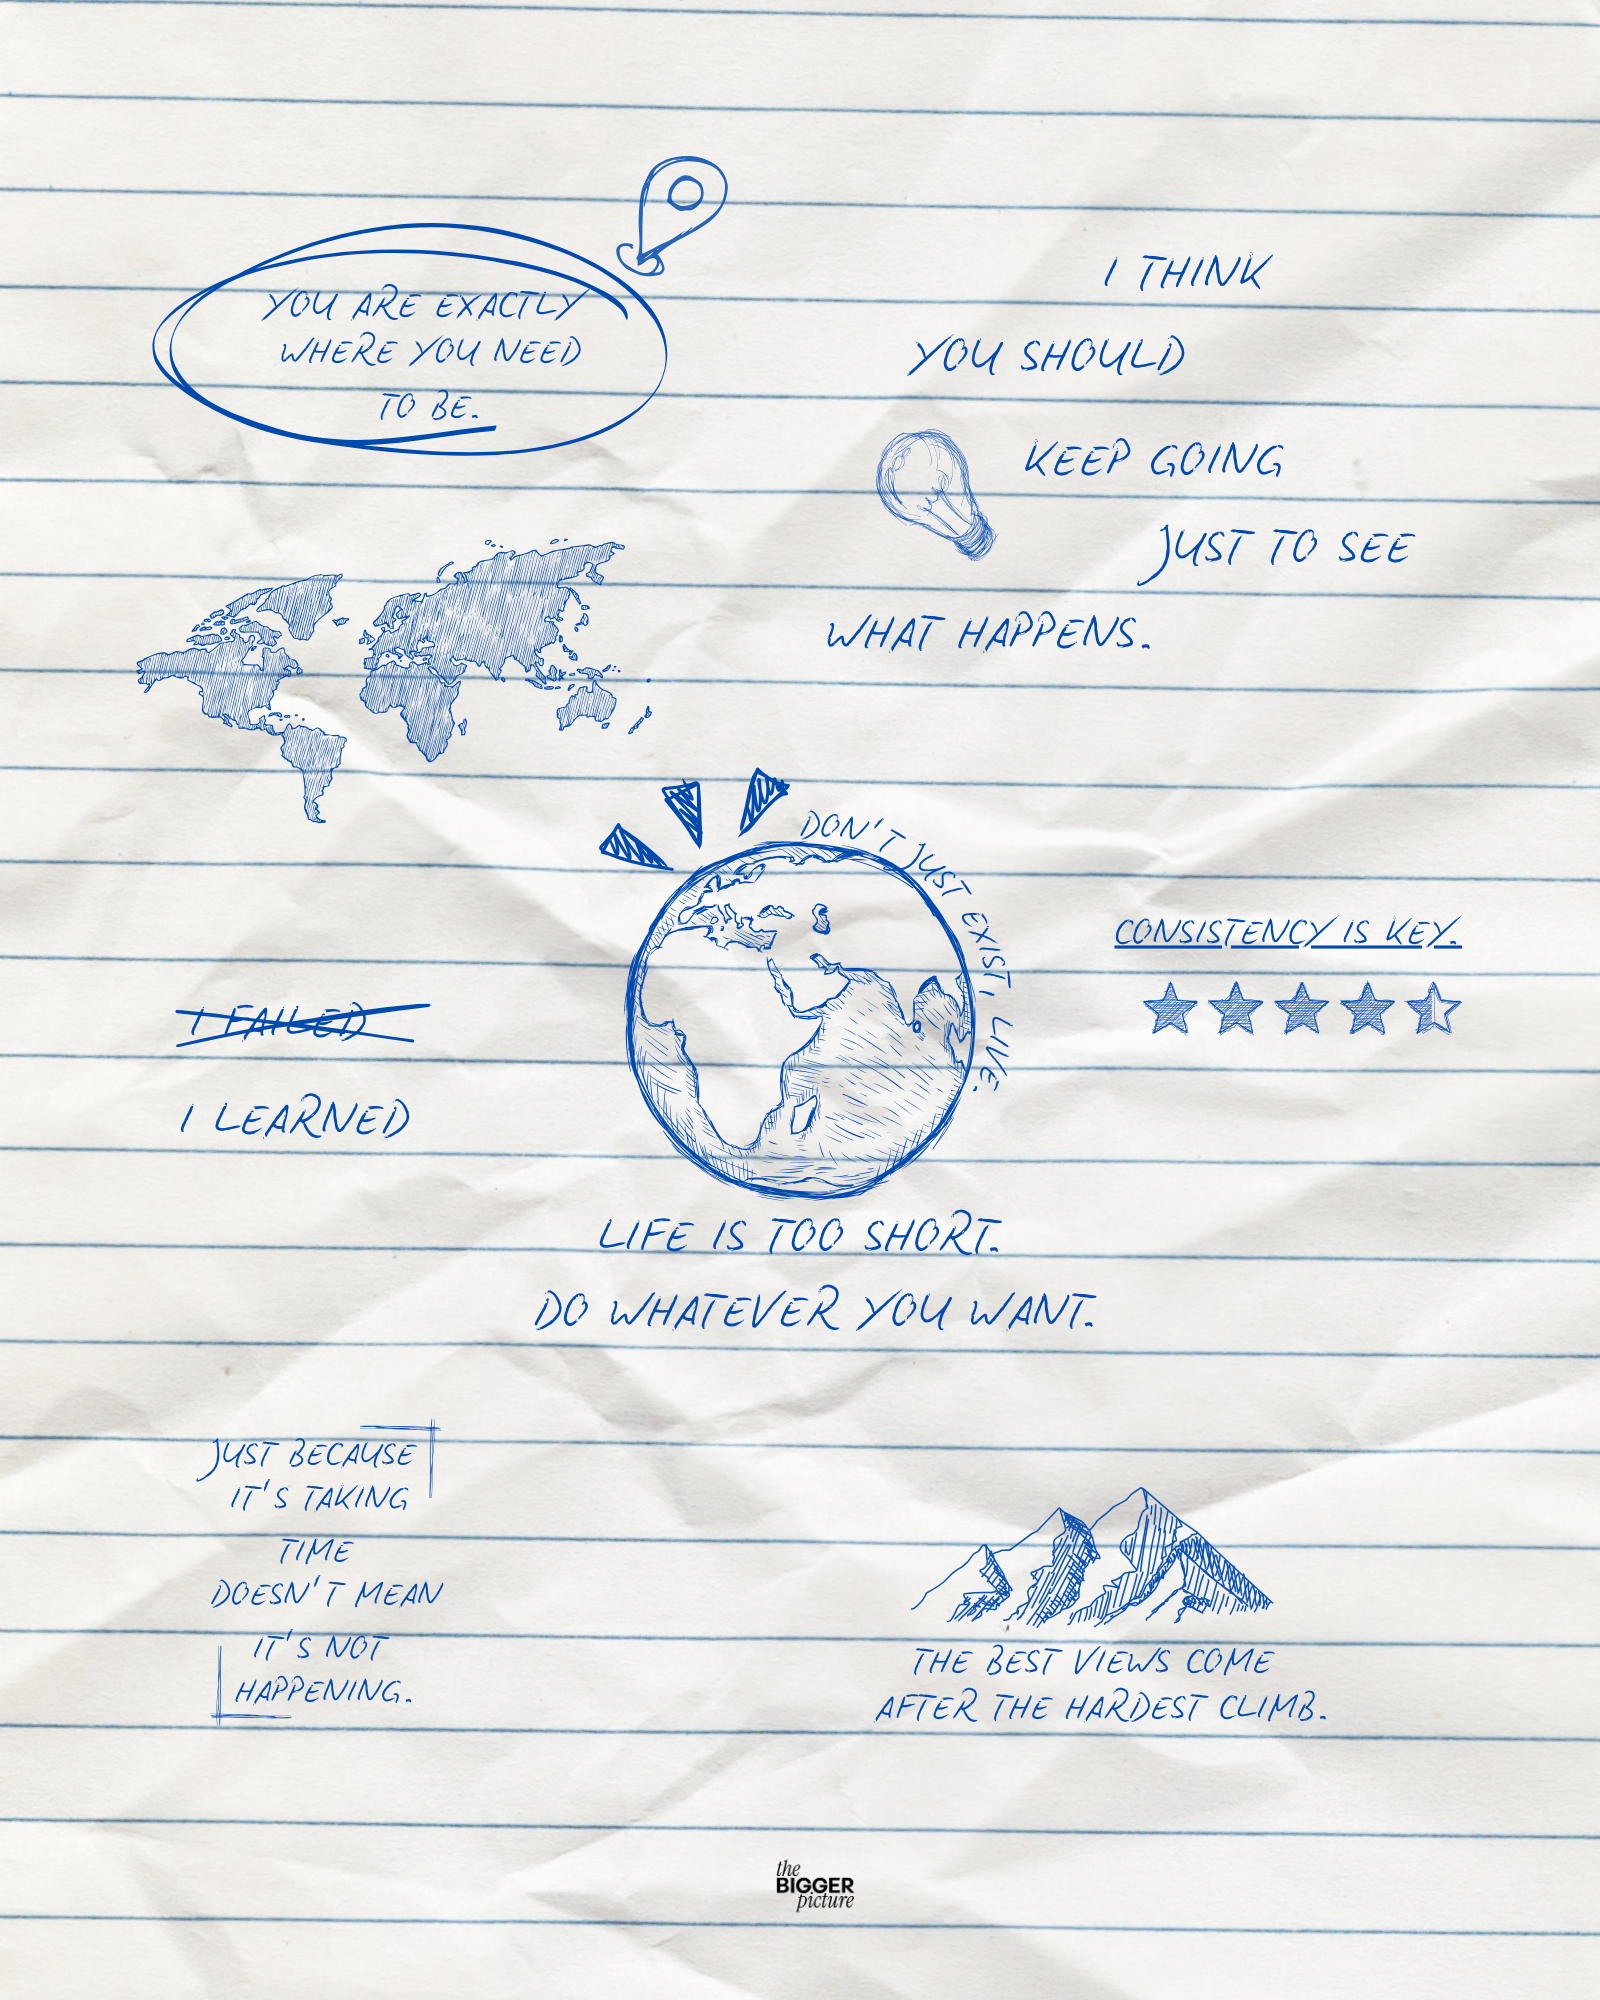 YOU ARE EXACTLY
WHERE YOU NEED
TO BE.
I THINK
YOU SHOULD
KEEP GOING
JUST TO SEE
WHAT HAPPENS.
DON'T JUST EXIST, LIVE.
CONSISTENCY IS KEY.
I FAILED
I LEARNED
LIFE IS TOO SHORT.
DO WHATEVER YOU WANT.
JUST BECAUSE
IT'S TAKING
TIME
DOESN'T MEAN
IT'S NOT
HAPPENING.
THE BEST VIEWS COME
AFTER THE HARDEST CLIMB.
the
BIGGER
picture